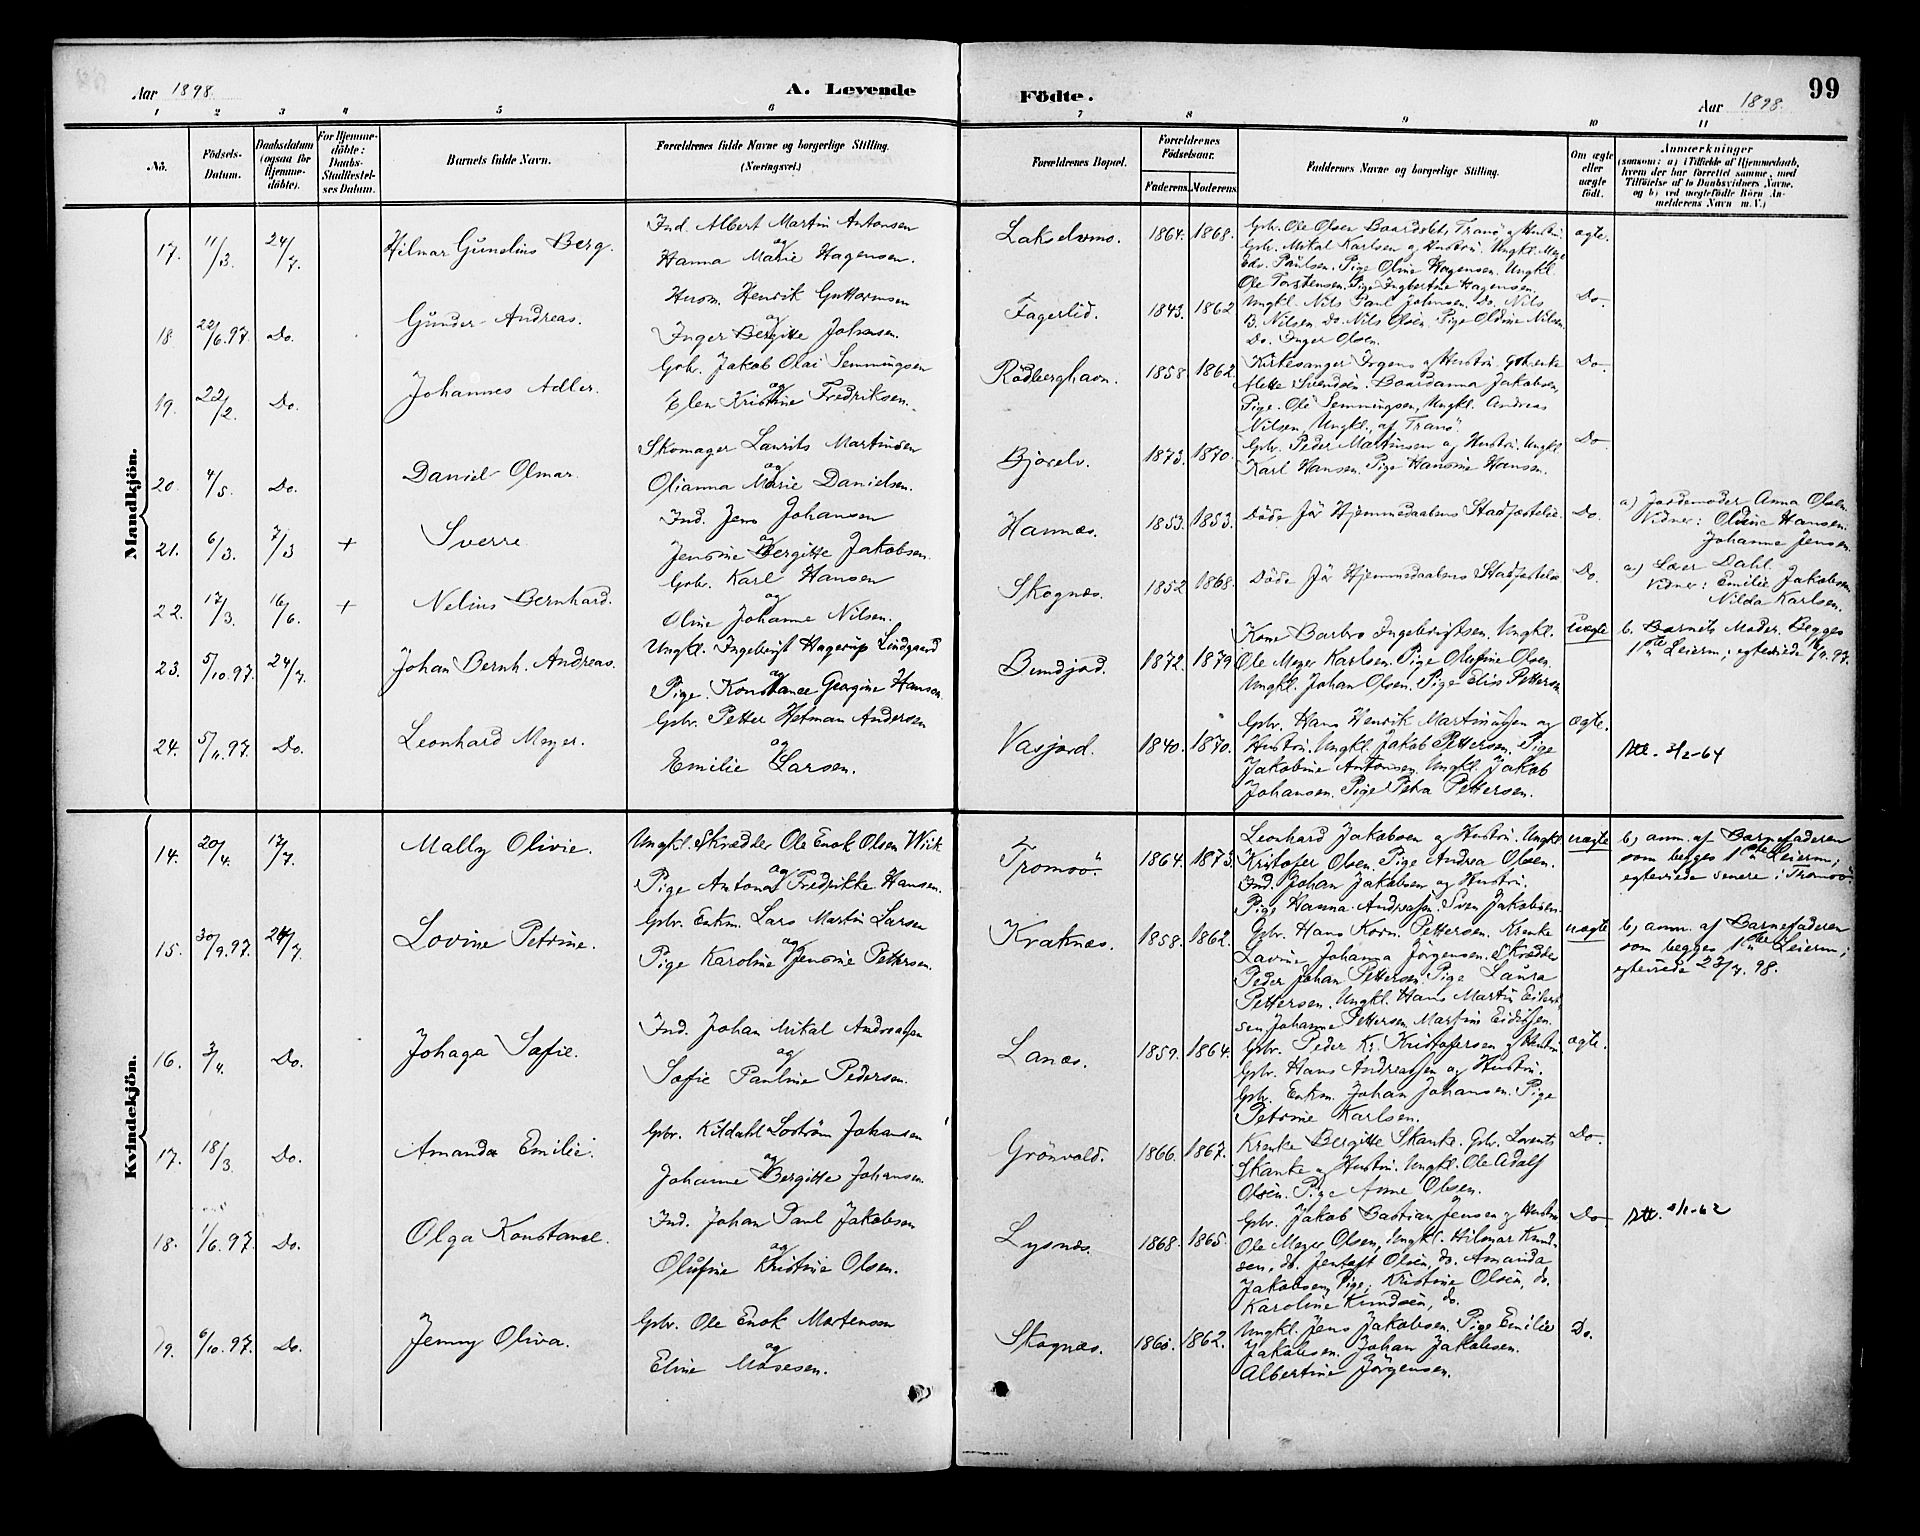 Aar 1898.
A. Levende
Födte.
Aar 1898.
99
1 2 3 4 5 6 7 8 9 10 11
No.
Födsels-Datum.
Daabsdatum (ogsaa för Hjemme-döbte).
For Hjemme-döbte: Daabs-Stadfæstel-ses Datum.
Barnets fulde Navn.
Forældrenes fulde Navne og borgerlige Stilling. (Næringsvei.)
Forældrenes Bopæl.
Forældrenes Födselsaar.
Faderens. Moderens.
Faddernes Navne og borgerlige Stilling.
Om ægte eller uægte födt.
Anmærkninger
(saasom: a) i Tilfælde af Hjemmedaab, hvem der har forrettet samme, med Tilföielse af to Daabsvidners Navne, og b) ved uægtefödte Börn An-melderens Navn m. V.)
Mandkjön.
17. 11/3. 24/7. Hilmar Gunelius Berg.
Ind. Albert Martin Antonsen
og
Hanna Marie Hagensen.
Lakselvnes. 1864. 1868.
Gbr. Ole Olsen Baardslet. Tranö og Hustru.
Gbr. Mikal Karlsen og Hustru. Ungkl. Meyer
Edv. Paulsen. Pige Oline Hagensen. Ungkl.
Ole Torstensen. Pige Ingbertine Hagensen.
ægte.
18. 22/6.97. Do. Gunder Andreas.
Husm. Henrik Guttormsen
og
Inger Bergitte Johnsen.
Fagerlid. 1843. 1862
Ungkl. Nils Paul Johnsen. Do. Nils
B. Nilsen. Do. Nils Olsen. Pige Oldine Nilsen.
Do. Inger Olsen.
Do.
19. 22/2. Do. Johannes Adler.
Gbr. Jakob Olai Semmingsen
og
Elen Kristine Fredriksen.
Rödberghavn. 1858 1862.
Kirkesanger Irgens og Hustru Enke
Mette Svendsen. Baardanna Jakobsen,
Pige. Ole Semmingsen, Ungkl. Andreas
Nilsen, Ungkl., af Tranö.
Do.
20. 4/5. Do. Daniel Olmar.
Skomager Laurits Martinsen
og
Olianna Marie Danielsen.
Bjorelv. 1873. 1870.
Gbr. Peder Martinsen og Hustru. Ungkl.
Karl Hansen. Pige Hansine Hansen.
Do
21. 6/3. 7/3 + Sverre
Ind. Jens Johansen
og
Jensine Bergitte Jakobsen.
Hannæs. 1853. 1853.
Döde för Hjemmedaabens Stadfæstelse.
Do.
a.) Jordemoder Anna Olsen.
Vidner: Olvine Hansen.
Johanne Jensen.
22. 17/3. 16/6. + Nelius Bernhard.
Gbr. Karl Hansen
og
Oline Johanne Nilsen.
Skognæs. 1852 1868.
Döde för Hjemmedaabens Stadfæstelse
Do.
a.) Lærer Dahl.
Vidner: Emilie Jakobsen
Nilda Karlsen.
23. 5/10.97. 24/7. Johan Bernh. Andreas.
Ungkl. Ingebrigt Hagerup Lindgaard
og
Pige. Konstance Georgine Hansen
Bundjord. 1872. 1879
Kone Barbro Ingebrigtsen. Ungkl.
Ole Meyer Karlsen. Pige Olufine Olsen.
Ungkl. Johan Olsen. Pige Elise Pettersen
Uægte
b. Barnets Moder. Begges
1ste Leierm; egteviede
24. 5/11.97. Do. Leonhard Meyer.
Gbr. Petter Hetman Andersen
og
Emilie Larsen.
Vasjord. 1840. 1870.
Gbr. Hans Henrik Martinussen og
Hustru. Ungkl. Jakob Pettersen. Pige
Jakobine Antonsen. Ungkl. Jakob
Johansen. Pige Petra Pettersen.
ægte.
Att. 3/2-64
Kvindekjön.
14. 20/4. 17/7. Mally Olivie.
Ungkl. Skrædder Ole Enok Olsen Wiik
og
Pige Antona Fredrikke Hansen.
Tromsö. 1864. 1873.
Leonhard Jakobsen og Hustru. Ungkl.
Kristofer Olsen. Pige Andrea Olsen.
Ind. Johan Jakobsen og Hustru.
Pige Hanna Andreassen. Sven Jakobsen.
uægte
b, anm. af Barnefaderen
som begges 1ste Leierm;
egteviede senere i Tromsö.
15. 30/9.97. 24/7. Lovine Petrine.
Gbr. Enkm. Lars Martin Larsen
og
Pige Karoline Jensine Pettersen.
Kraknæs. 1858. 1862.
Gbr. Hans Korn. Pettersen. Enke
Lavine Johanna Jörgensen. Skrædder
Peder Johan Pettersen. Pige Laura
Pettersen. Ungkl. Hans Martin Eidis-
sen. Johanna Pettersen. Martine Eidissen.
uægte
b, anm. af Barnefaderen
som begges 1ste Leierm;
egteviede 23/7. 98.
16. 3/4. Do. Johaga Sofie.
Ind. Johan Mikal Andreassen
og
Sofie Pauline Pedersen.
Lanæs. 1859. 1864.
Gbr. Peder Kr. Kristofersen og Hustru
Gbr. Hans Andreassen og Hustru.
Gbr. Enkm. Johan Johansen. Pige
Petrine Karlsen.
ægte.
17. 18/3. Do. Amanda Emilie.
Gbr. Kildahl Johansen
og
Johanne Bergitte Johansen.
Grönvold. 1866. 1867.
Enke Bergitte Skanke. Gbr. Lorents
Skanke og Hustru. Ungkl. Ole Adolf
Olsen. Pige Anne Olsen.
Do.
18. 1/6.97. Do. Olga Konstance.
Ind. Johan Paul Jakobsen
og
Olufine Kristine Olsen.
Lysnæs. 1868. 1865.
Gbr. Jakob Bastian Jensen og Hustru
Ole Meyer Olsen, Ungkl. Hilmar Knud-
sen, do. Jentoft Olsen, do. Amanda
Jakobsen, Pige, Kristine Olsen, do.
Karoline Knudsen, do.
Do
Att. 2/1-62
19. 6/10.97. Do. Jenny Oliva.
Gbr. Ole Enok Mortensen
og
Eline Mosesen.
Skognæs. 1860. 1862.
Ungkl. Jens Jakobsen. Pige Emilie
Jakobsen. Johan Jakobsen.
Albertine Jörgensen.
Do.